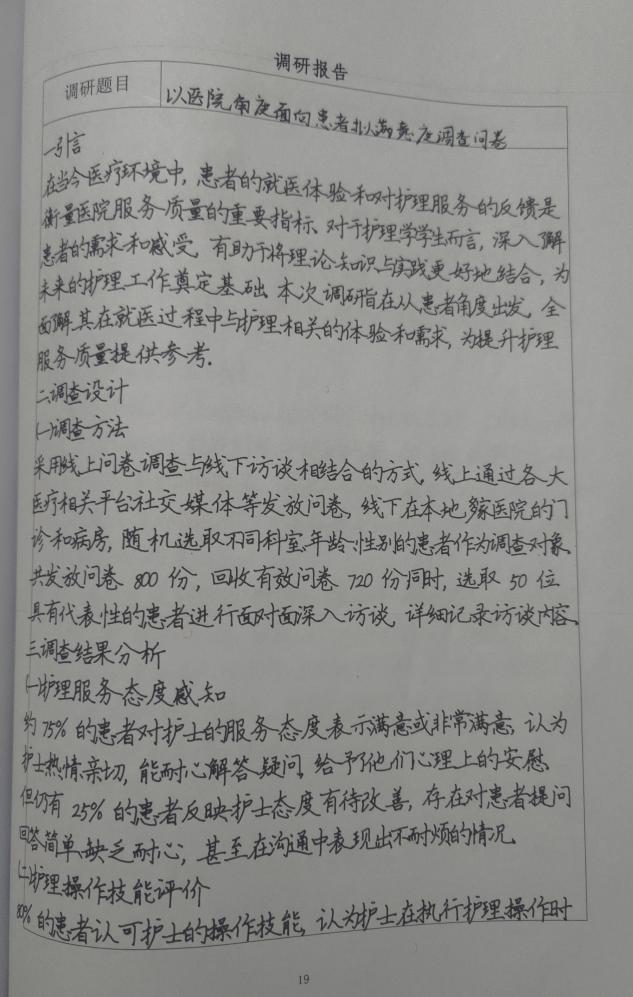 调研报告
调研题目
以医院角度面向患者拟满意度调查问卷
一引言
在当今医疗环境中，患者的就医体验和对护理服务的反馈是
衡量医院服务质量的重要指标、对于护理学学生而言，深入了解
患者的需求和感受，有助于将理论知识与实践更好地结合，为
未来的护理工作奠定基础、本次调研旨在从患者角度出发，全
面了解其在就医过程中与护理相关的体验和需求，为提升护理
服务质量提供参考.
二、调查设计
(一)调查方法
采用线上问卷调查与线下访谈相结合的方式，线上通过各大
医疗相关平台社交媒体等发放问卷，线下在本地多家医院的门
诊和病房，随机选取不同科室、年龄、性别的患者作为调查对象、
共发放问卷800份，回收有效问卷720份同时，选取50位
具有代表性的患者进行面对面深入访谈，详细记录访谈内容、
三、调查结果分析
(一)护理服务态度感知
约75%的患者对护士的服务态度表示满意或非常满意、认为
护士热情亲切，能耐心解答疑问、给予了他们心理上的安慰、
但仍有25%的患者反映护士态度有待改善，存在对患者提问
回答简单、缺乏耐心；甚至在沟通中表现出不耐烦的情况、
(二)护理操作技能评价
80%的患者认可护士的操作技能，认为护士在执行护理操作时
19